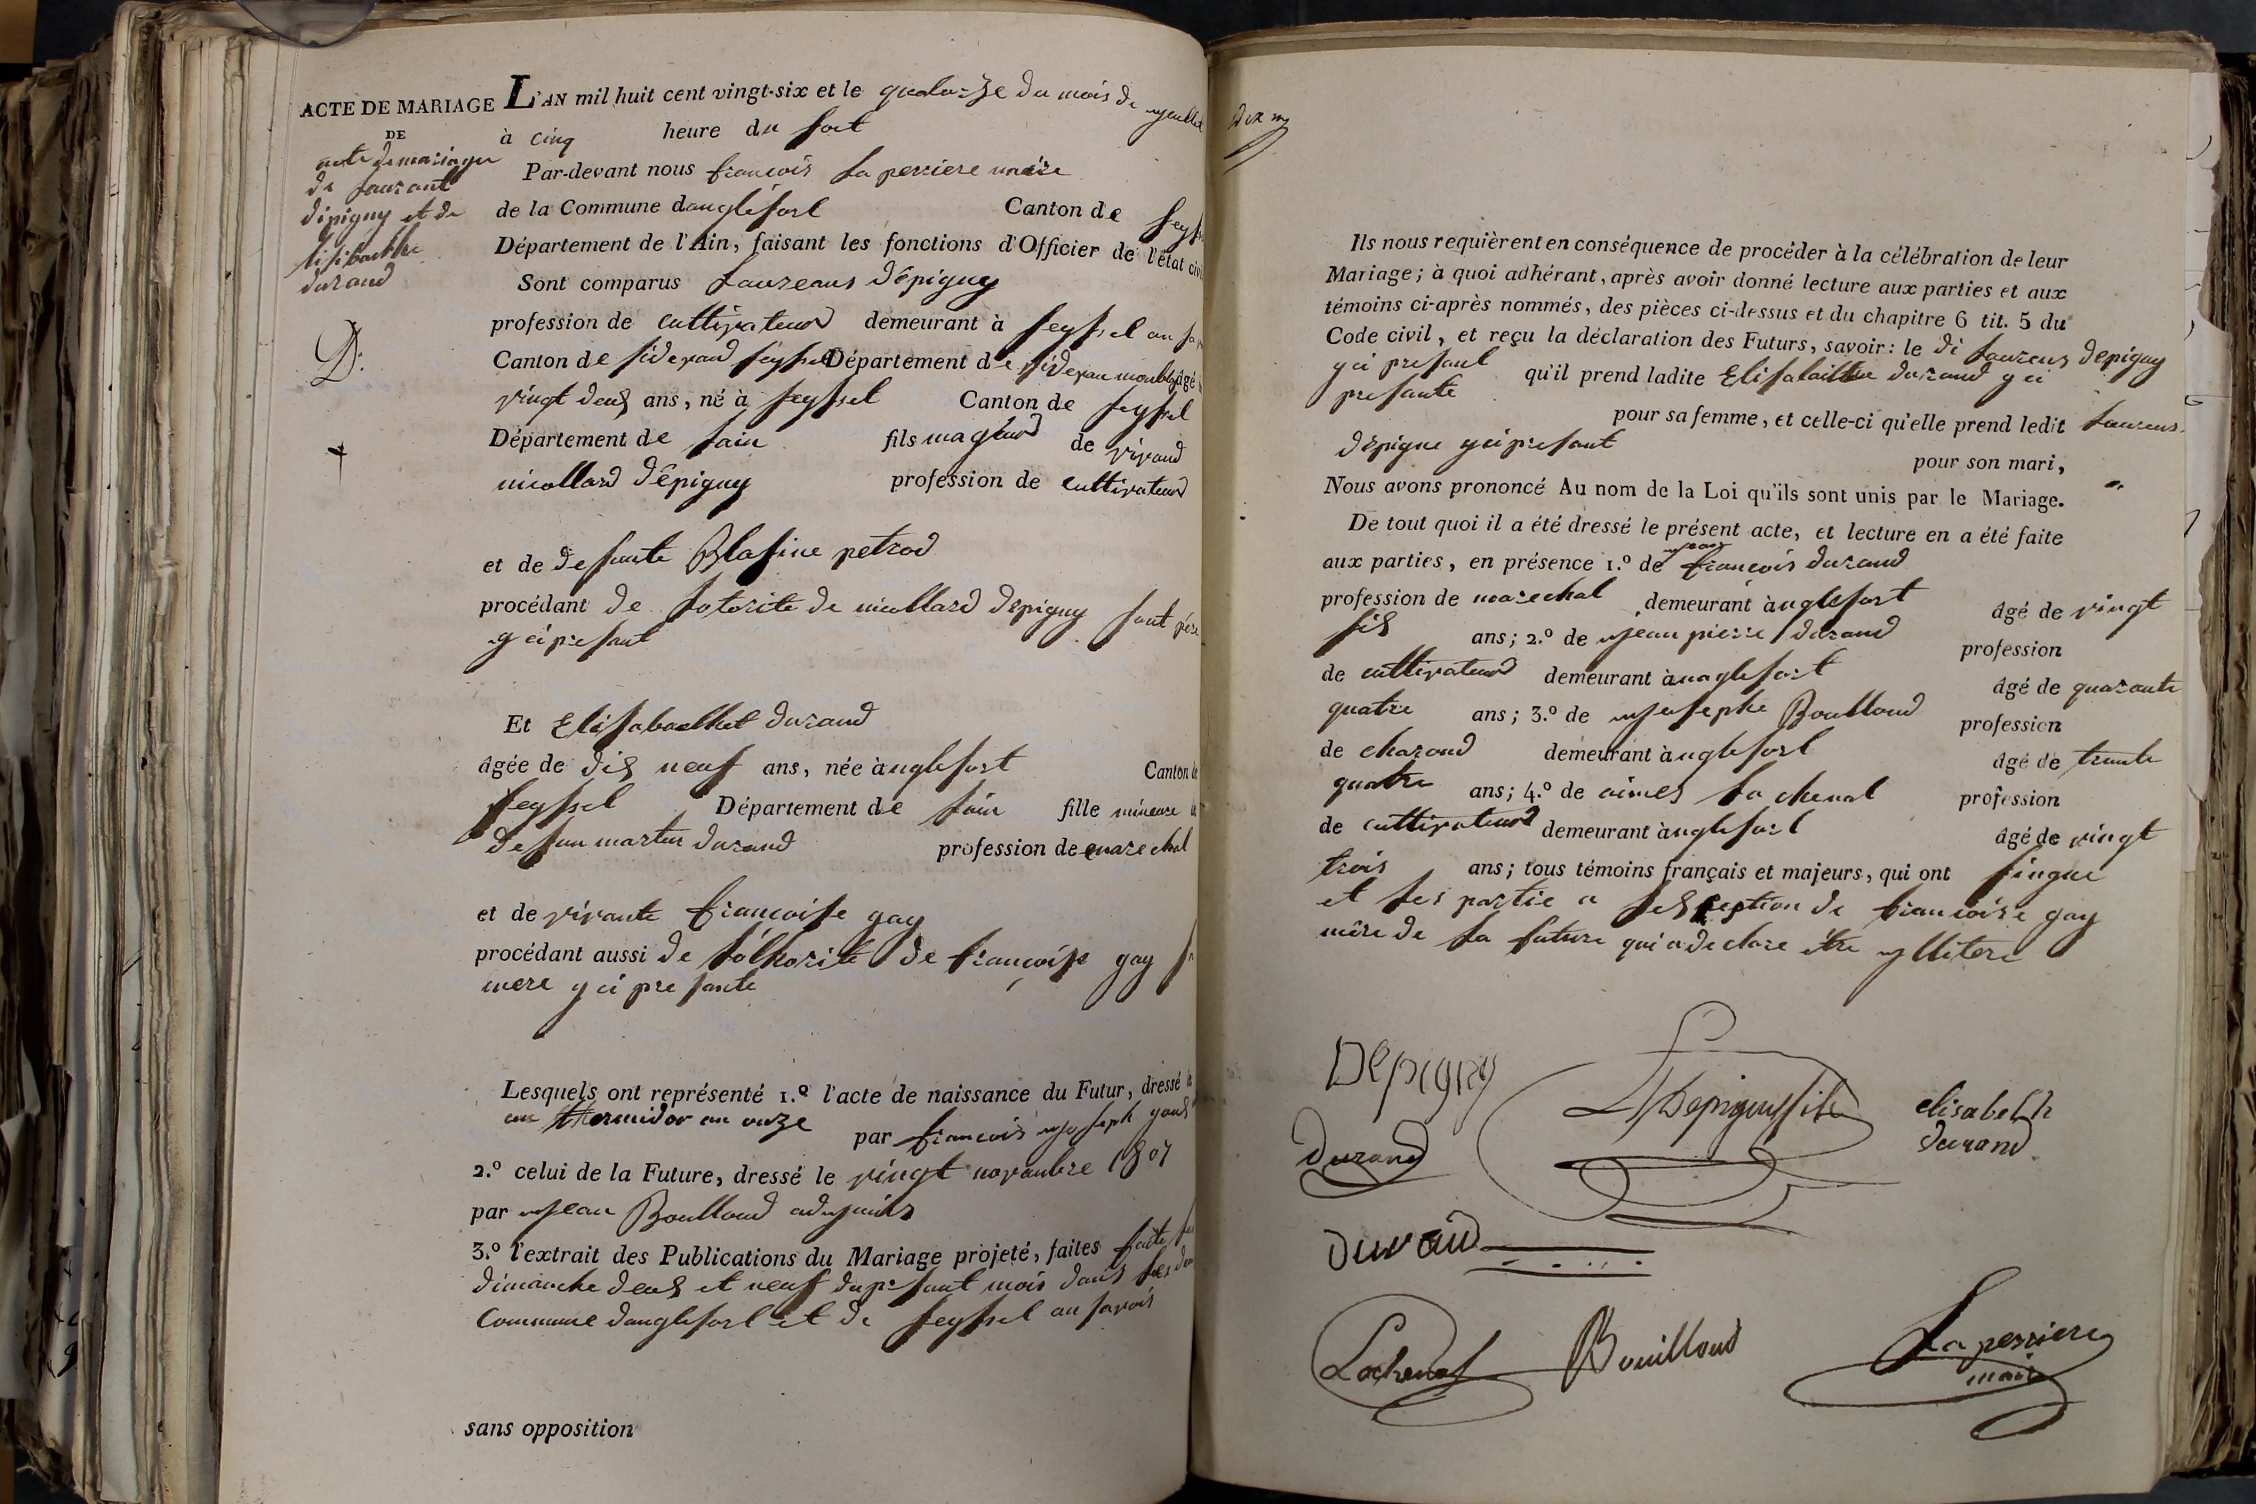 ACTE DE MARIAGE
DE
acte de mariage
de laurant
dépigny et de
durand
D:
L'AN mil huit cent vingt-six et le quatorze du mois de
à cinq heure du soit
Par-devant nous françois la perriere maire
de la Commune danglefort Canton de
Département de l'Ain, faisant les fonctions d'Officier de l'état civi
Sont comparus Laureans Dépigny
profession de cultivateur demeurant à seyssel au
Canton de seyssel Département de âgé
vingt deux ans, né à seyssel Canton de seyssel
Département de lain fils majeur de vivand
nicollard dépigny profession de cultivateur
et de defunte Blasine petrod
procédant de lotorite de nicollard depigny sont père
y ci present
Et Elisabaethet durand
âgée de dix neuf ans, née à nglefort Canton de
seyssel Département de lain fille mineure
defun martin durand profession de marechal
et de vivante françoise gay
procédant aussi de lothorite de françoise gay
mere y ci presante
Lesquels ont représenté 1.º l'acte de naissance du Futur, dressé
thermidor an onze par françois joseph
2.º celui de la Future, dressé le vingt novembre 1807
par jean Boulloud adjoint
3.º l'extrait des Publications du Mariage projeté, faites faite
dimanche deux et neuf du present mois dans les
Commune danglefort et de seyssel au savois
sans opposition
Ils nous requièrent en conséquence de procéder à la célébration de leur
Mariage; à quoi adhérant, après avoir donné lecture aux parties et aux
témoins ci-après nommés, des pièces ci-dessus et du chapitre 6 tit. 5 du
Code civil, et reçu la déclaration des Futurs, savoir: le di laurens depigny
y ci presant qu'il prend ladite durand y ci
presante pour sa femme, et celle-ci qu'elle prend ledit laurens
depigne y ci presant pour son mari,
Nous avons prononcé Au nom de la Loi qu'ils sont unis par le Mariage.
De tout quoi il a été dressé le présent acte, et lecture en a été faite
aux parties, en présence 1.º de jean françois durand
profession de marechal demeurant à nglefort âgé de vingt
six ans; 2.º de jean pierre durand profession
de cultivateur demeurant à naglefort âgé de quarante
quatre ans; 3.º de josephe Boulloud profession
de charond demeurant à nglefort âgé de trante
quatre ans; 4.º de aimes la chenal profession
de cultivateur demeurant à nglefort âgé de vingt
trois ans; tous témoins français et majeurs, qui ont singné
et les partie a lesseption de françoise gay
mère de la future qui a declare être ylliteré
Depigny
L Depigny fils
elisabeth
durand
Durand
Durand
Lachenal
Bouilloud
Laperriere
maire